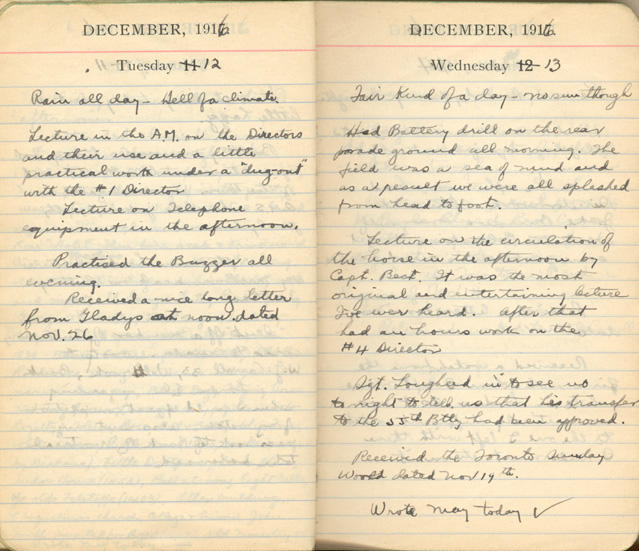 DECEMBER, 1916
Tuesday 11 12
Rain all day - Hell of a climate.
Lecture in the A.M. on the Directors
and their use and a little
practical work under a "dug-out"
with the #1 Director
Lecture on Telephone
equipment in the afternoon.
Practised the Buzzer all
evening.
Received a nice long letter
from Gladys at noon dated
Nov. 26
DECEMBER, 1916
Wednesday 12 13
Fair Kind of a day - no sun though
Had Battery drill on the rear
parade ground all morning. The
field was a sea of mud and
as a result we were all splashed
from head to foot.
Lecture on the circulation of
the horse in the afternoon by
Capt. Best. It was the most
original and entertaining lecture
I've ever heard. After that
had an hours work on the
#4 Director
Sgt. Lougheed in to see us
to night to tell us that his transfer
to the 55th Btty had been approved.
Received the Toronto Sunday
World dated Nov 19th.
Wrote May today √